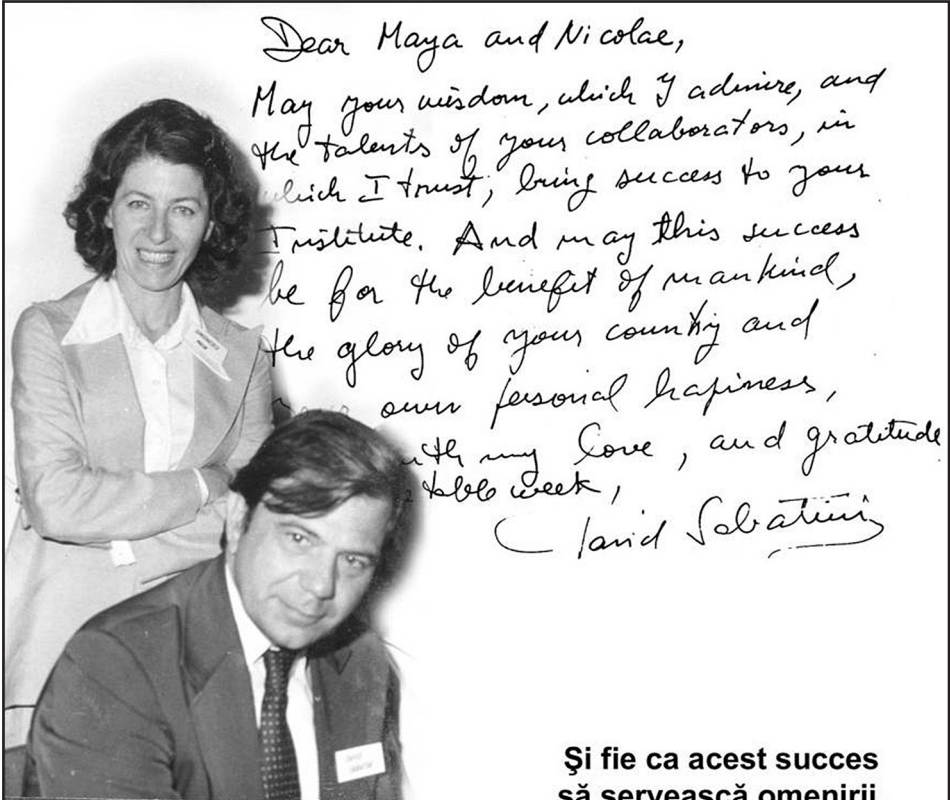 Dear Maya and Nicolae,
May your wisdom, which I admire, and
the talents of your collaborators, in
which I trust, bring success to your
Institute. And may this success
be for the benefit of mankind,
the glory of your country and
own personal hapiness,
my love, and gratitude
table week,
David Sabatini
Şi fie ca acest succes
să servească omenirii